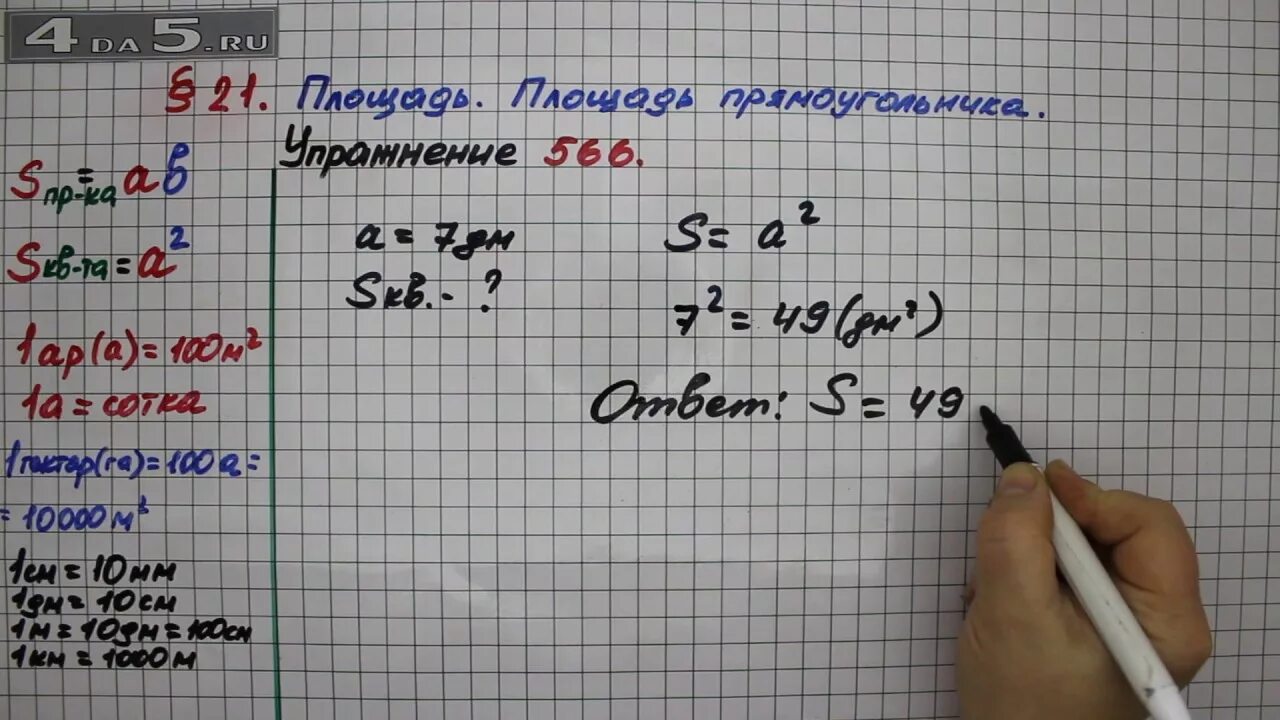 4DA5.RU
§ 21. Площадь. Площадь прямоугольника.
Упражнение 566.
Sпр-ка = ав
Sкв-та = а²
1ар(а) = 100м²
1а = сотка
1гектар(га) = 100а =
= 10000м³
1см = 10мм
1дм = 10см
1м = 10дм = 100см
1км = 1000м
а = 7дм
Sкв. - ?
S = а²
7² = 49(дм²)
Ответ: S = 49